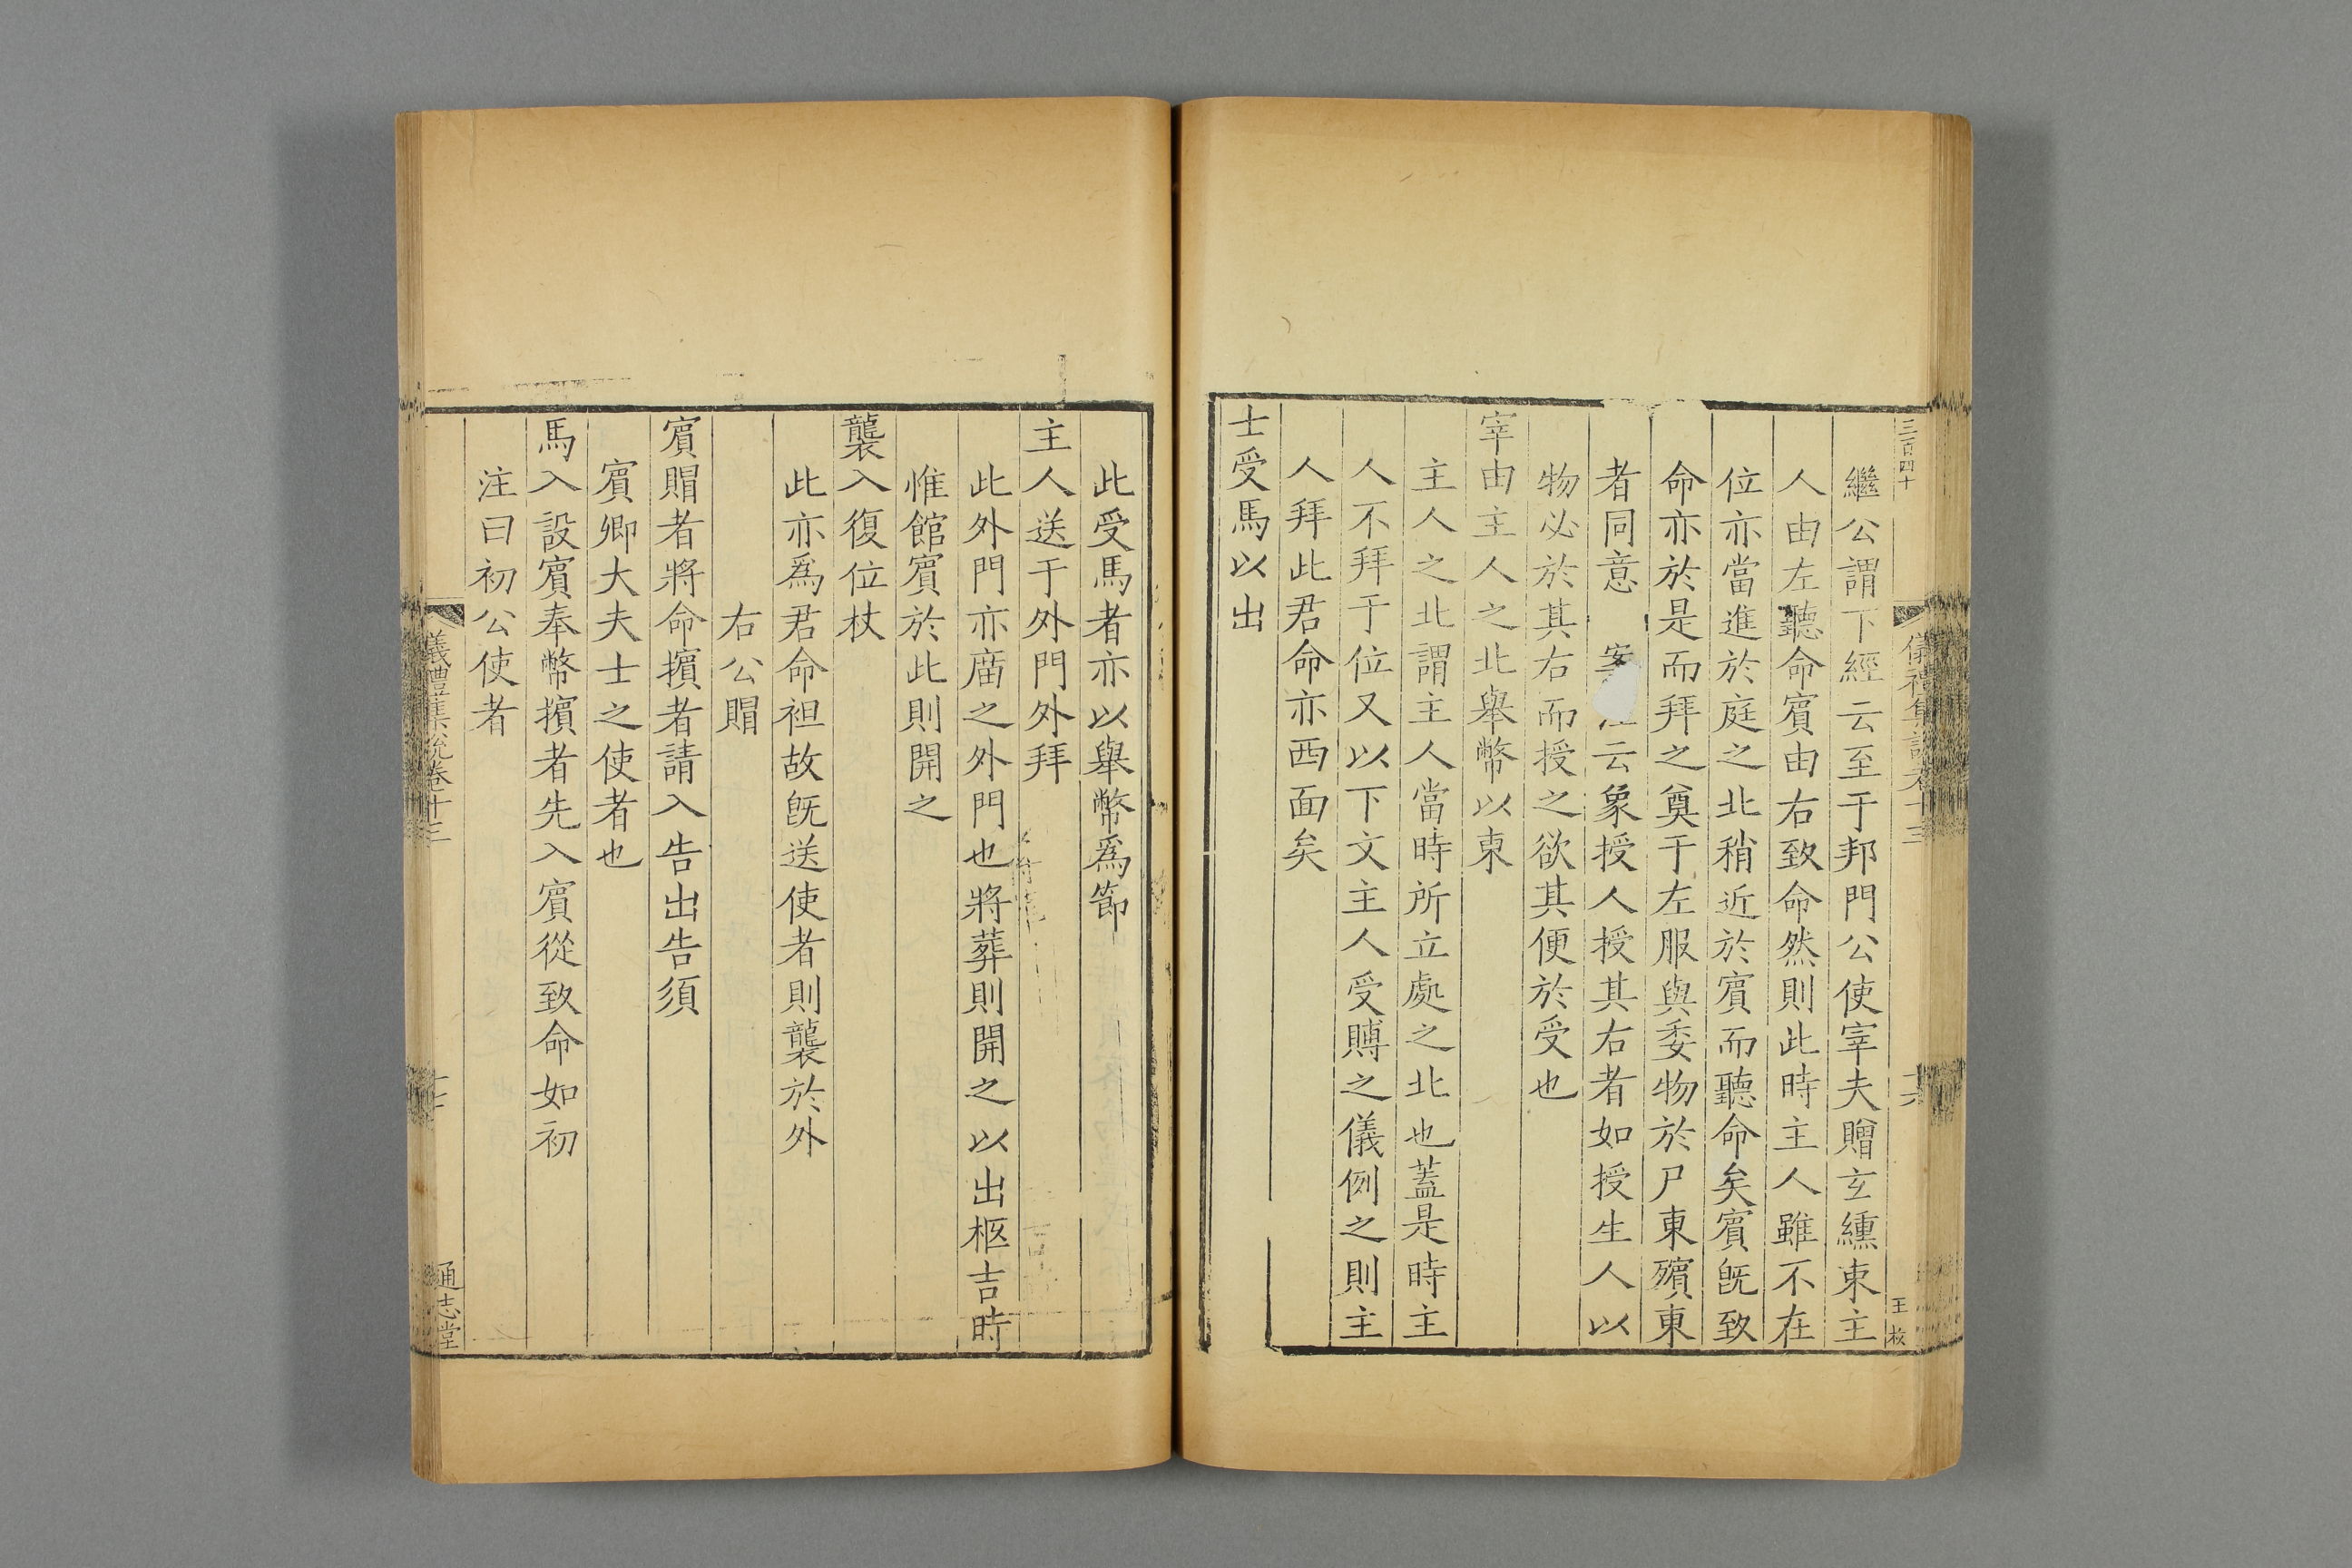 三百四十
儀禮集說卷十三
十六
王 核
繼公謂下經云至于邦門公使宰夫贈玄纁束主
人由左聽命賓由右致命然則此時主人雖不在
位亦當進於庭之北稍近於賓而聽命矣賓旣致
命亦於是而拜之奠于左服與委物於尸東殯東
者同意 案 云象授人授其右者如授生人以
物必於其右而授之欲其便於受也
宰由主人之北舉幣以東
主人之北謂主人當時所立處之北也蓋是時主
人不拜于位又以下文主人受賻之儀例之則主
人拜此君命亦西面矣
士受馬以出
此受馬者亦以舉幣爲節
主人送于外門外拜
此外門亦庿之外門也將葬則開之以出柩吉時
惟館賓於此則開之
襲入復位杖
此亦爲君命袒故旣送使者則襲於外
右公賵
賓賵者將命擯者請入告出告須
賓卿大夫士之使者也
馬入設賓奉幣擯者先入賓從致命如初
注曰初公使者
儀禮集說卷十三
十七
通志堂